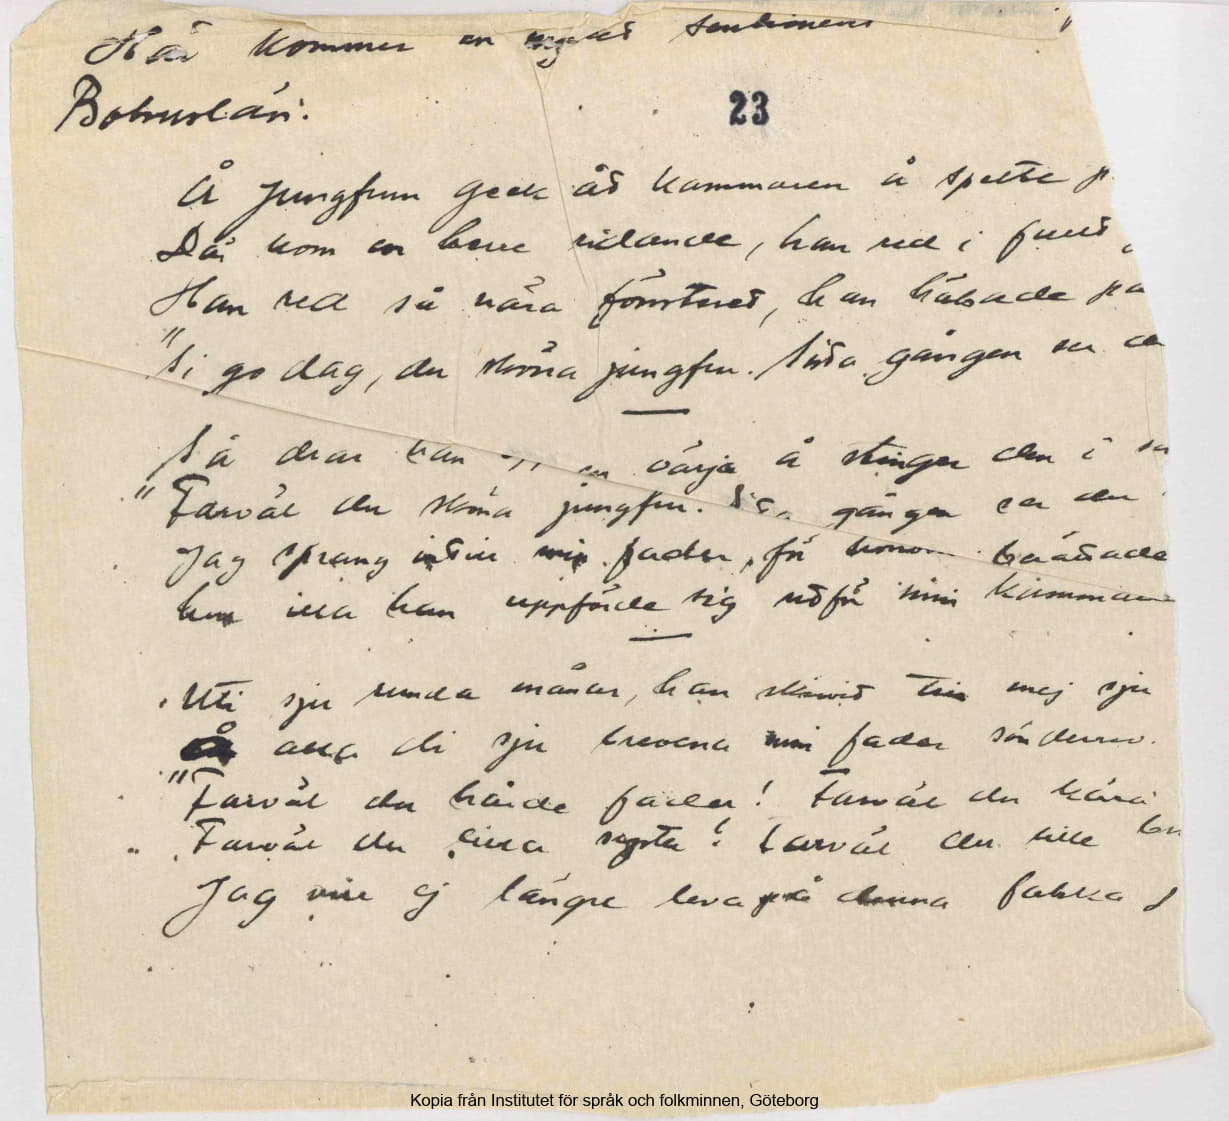 Här kommer en mycket sentimens
Bohuslän.
23
Å jungfrun geck åt kammaren å spelte
Där kom en herre ridande, han red i fullt
Han red så nära fönsteret, han hälsade på
"Si go dag, du sköna jungfru. Sista gången ser
Så drar han en värja å stinger den i
"Farväl du sköna jungfru. Sista gången ser du
Jag sprang in till min fader, för honom berättade
hur illa han uppförde sig utför min kammare
Uti sju runda månar, han skrivit till mej sju
Å alla di sju brevena min fader sönderrev.
"Farväl du hårde fader! Farväl du kära
"Farväl du lilla systa! Farväl du lille
Jag vill ej längre leva på denna falska
Kopia från Institutet för språk och folkminnen, Göteborg